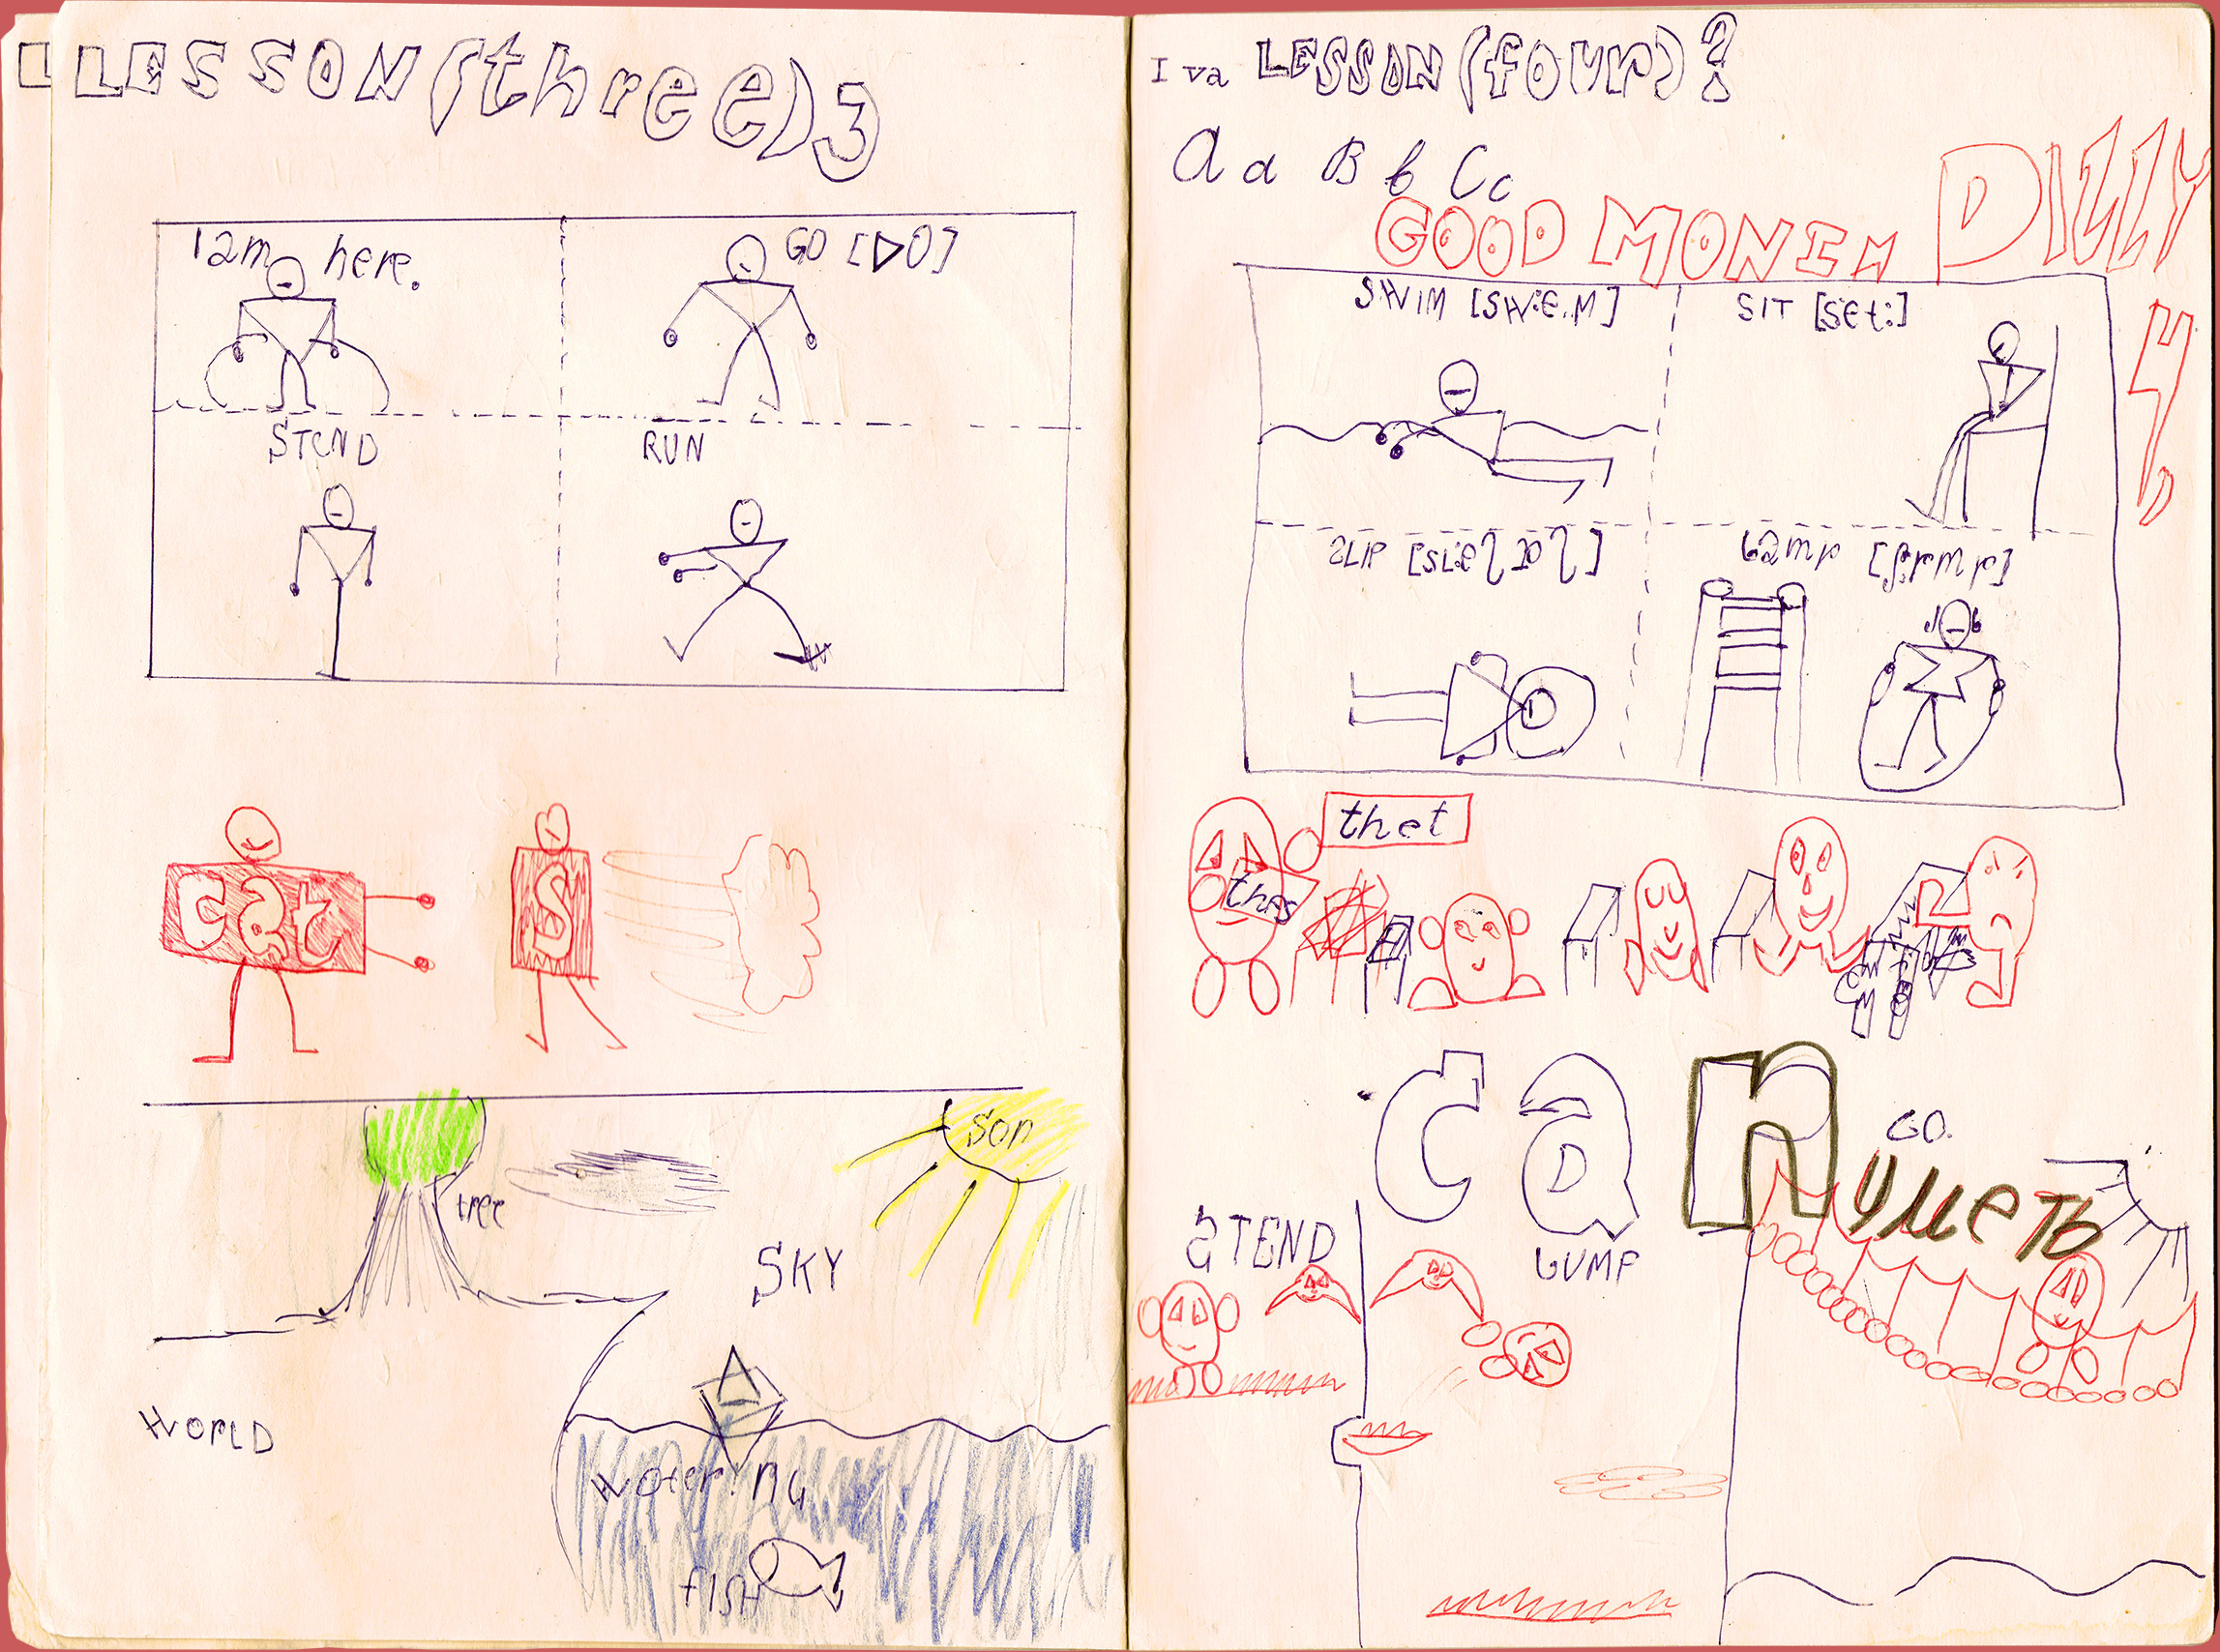 LESSON (three) 3
I am here.
GO [DO]
STEND
RUN
cat
S
tree
Son
SKY
WORLD
fish
I va LESSON (four)
A a B b C c
GOOD MONIM DILLY
SWIM [SW:E..M]
SIT [set:]
SLIP
thet
thes
can
уметь
GO.
STEND
GUMP